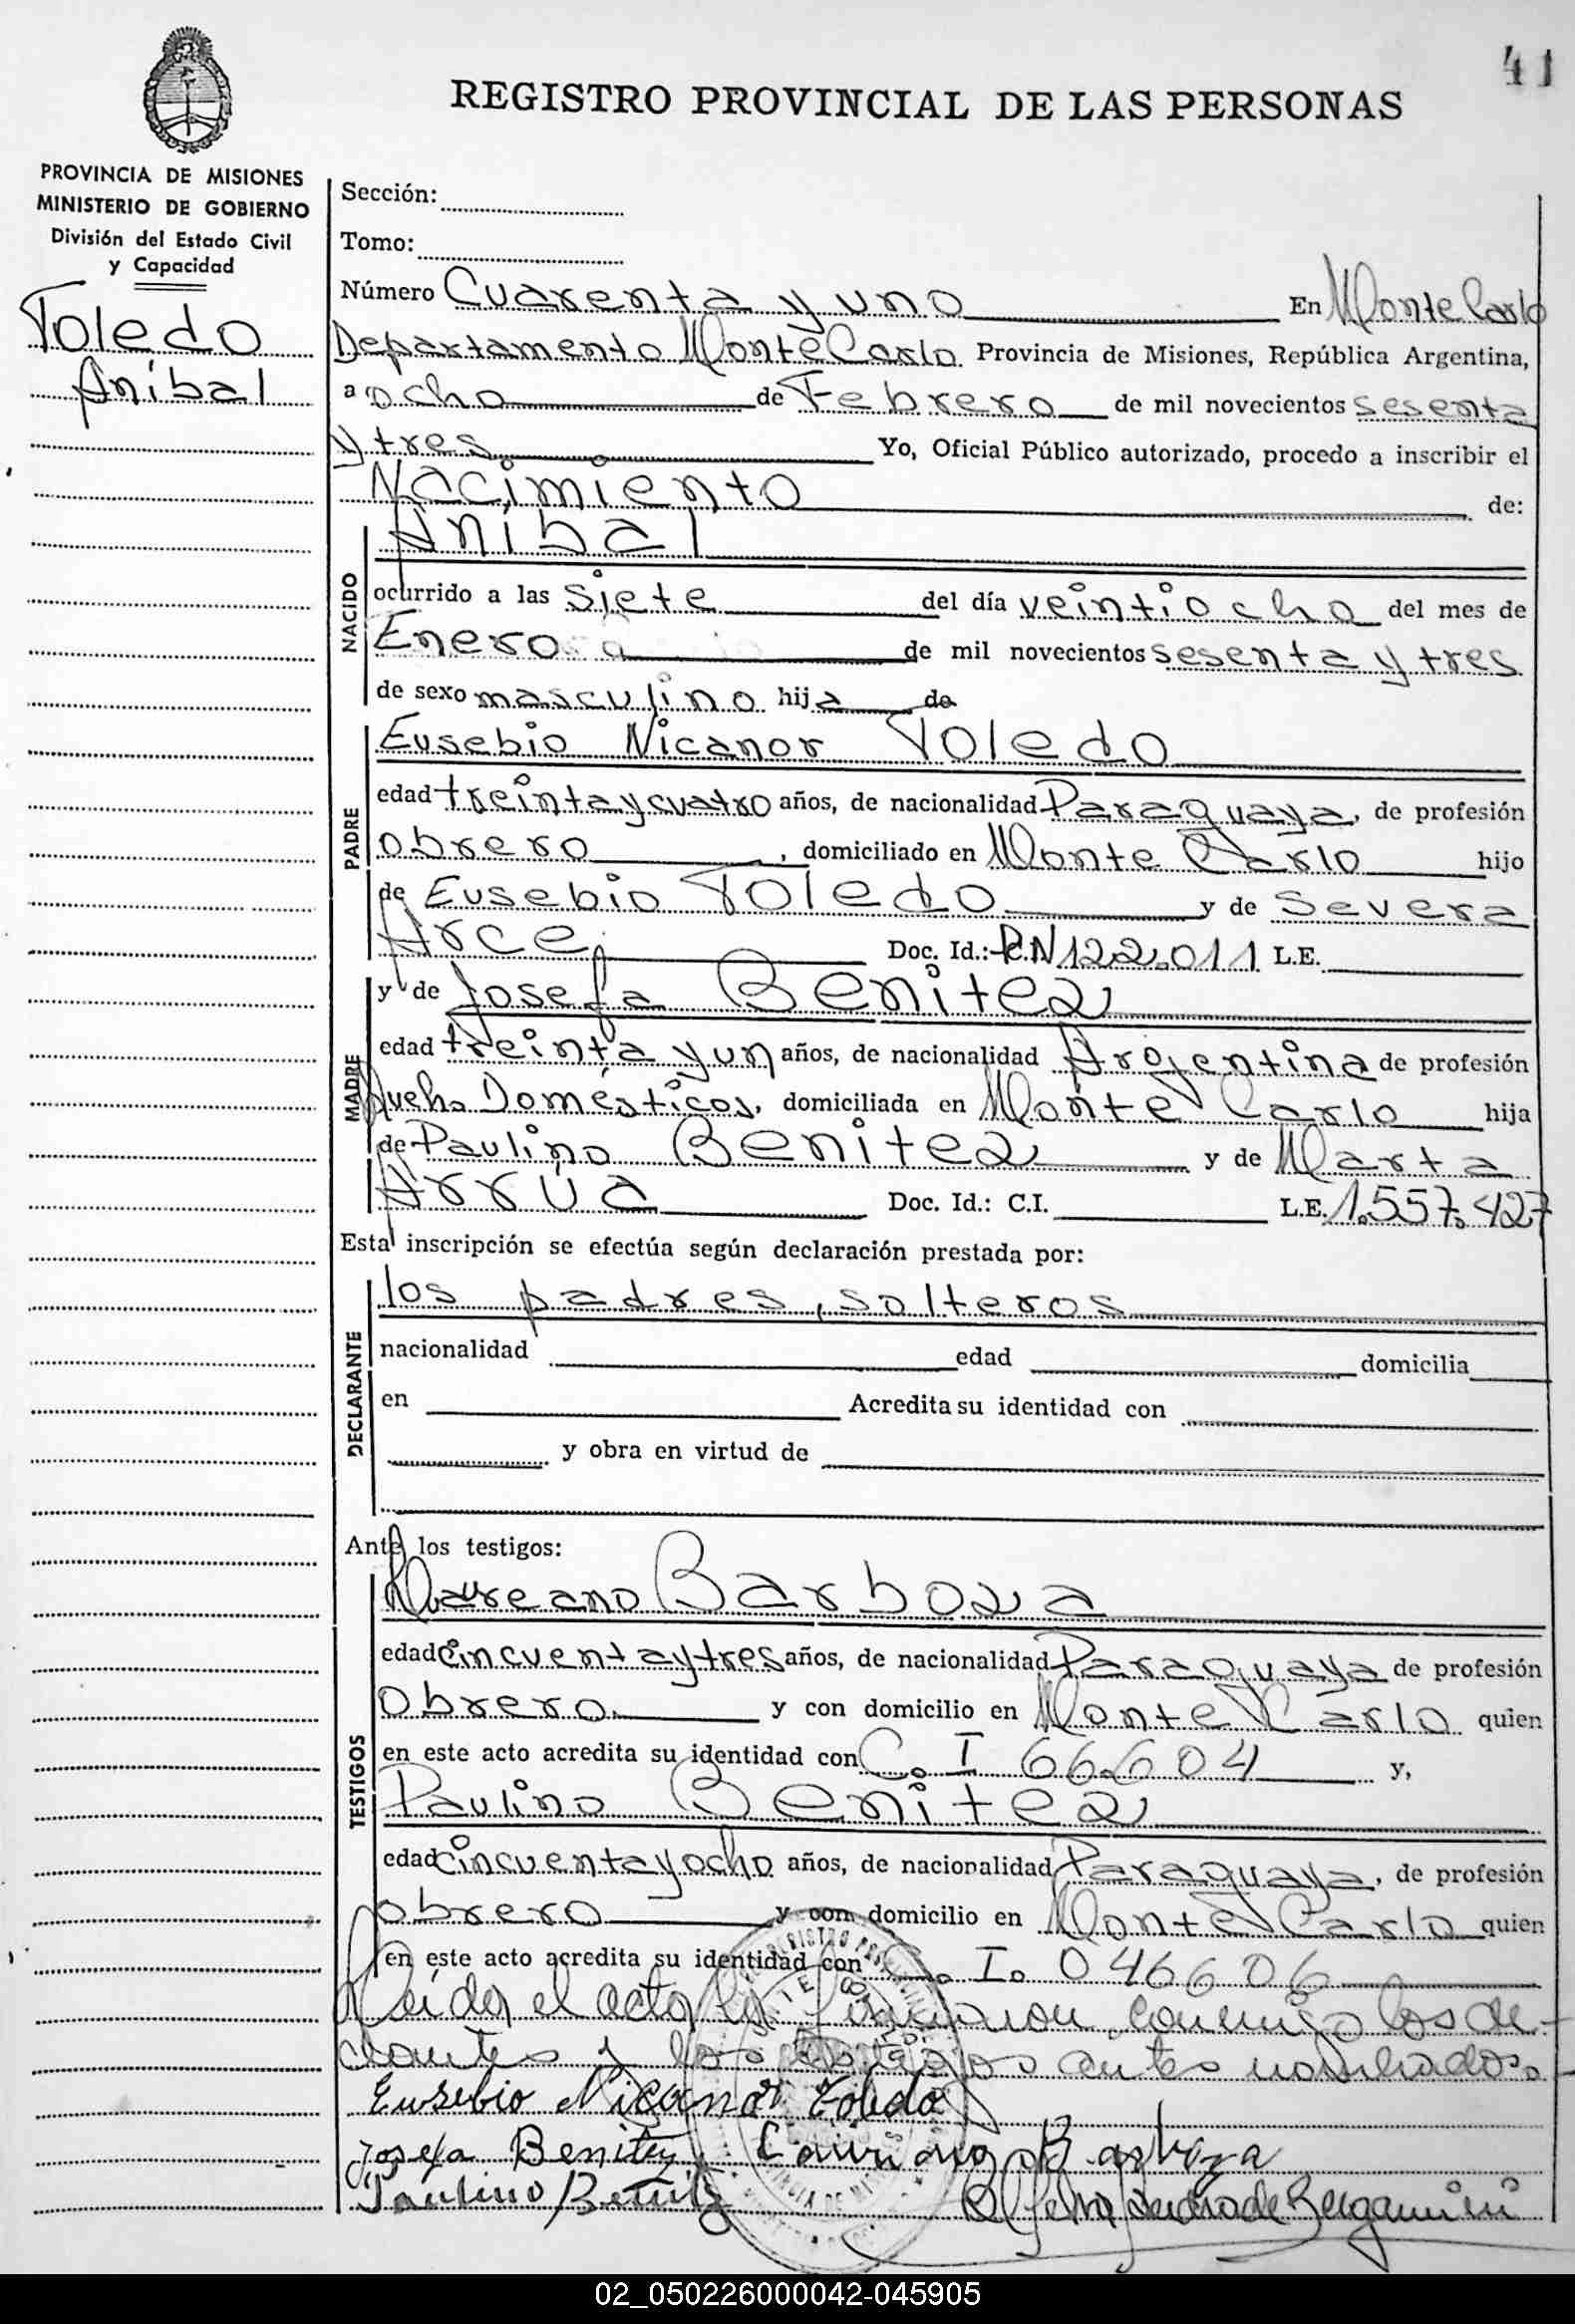 41
REGISTRO PROVINCIAL DE LAS PERSONAS
PROVINCIA DE MISIONES
MINISTERIO DE GOBIERNO
División del Estado Civil
y Capacidad
Toledo
Aníbal
Sección:
Tomo:
Número Cuarenta y uno En Monte Carlo
Departamento Monte Carlo Provincia de Misiones, República Argentina,
a ocho de Febrero de mil novecientos sesenta
y tres Yo, Oficial Público autorizado, procedo a inscribir el
Nacimiento de:
NACIDO
Aníbal
ocurrido a las siete del día veintiocho del mes de
Enero de mil novecientos sesenta y tres
de sexo masculino hija de
PADRE
Eusebio Nicanor Toledo
edad treinta y cuatro años, de nacionalidad Paraguaya, de profesión
obrero, domiciliado en Monte Carlo hijo
de Eusebio Toledo y de Severa
Arce Doc. Id.: 122.011 L.E.
MADRE
y de Josefa Benitez
edad treinta y un años, de nacionalidad Argentina de profesión
Domésticos, domiciliada en Monte Carlo hija
de Paulino Benitez y de Marta
Arrúa Doc. Id.: C.I. L.E. 1.557.427
Esta inscripción se efectúa según declaración prestada por:
DECLARANTE
los padres, solteros
nacionalidad edad domicilia
en Acredita su identidad con
y obra en virtud de
Ante los testigos:
TESTIGOS
Laureano Barboza
edad cincuenta y tres años, de nacionalidad Paraguaya de profesión
obrero y con domicilio en Monte Carlo quien
en este acto acredita su identidad con C. I 66.604 y,
Paulino Benitez
edad cincuenta y ocho años, de nacionalidad Paraguaya, de profesión
obrero y con domicilio en Monte Carlo quien
en este acto acredita su identidad con C. I. 046606
Leída el acta la firmaron conmigo los de-
clarantes y los testigos antes nombrados.
Eusebio Nicanor Toledo
Josefa Benitez Lauriano Barboza
Paulino Benitez de Bergamini
02_050226000042-045905